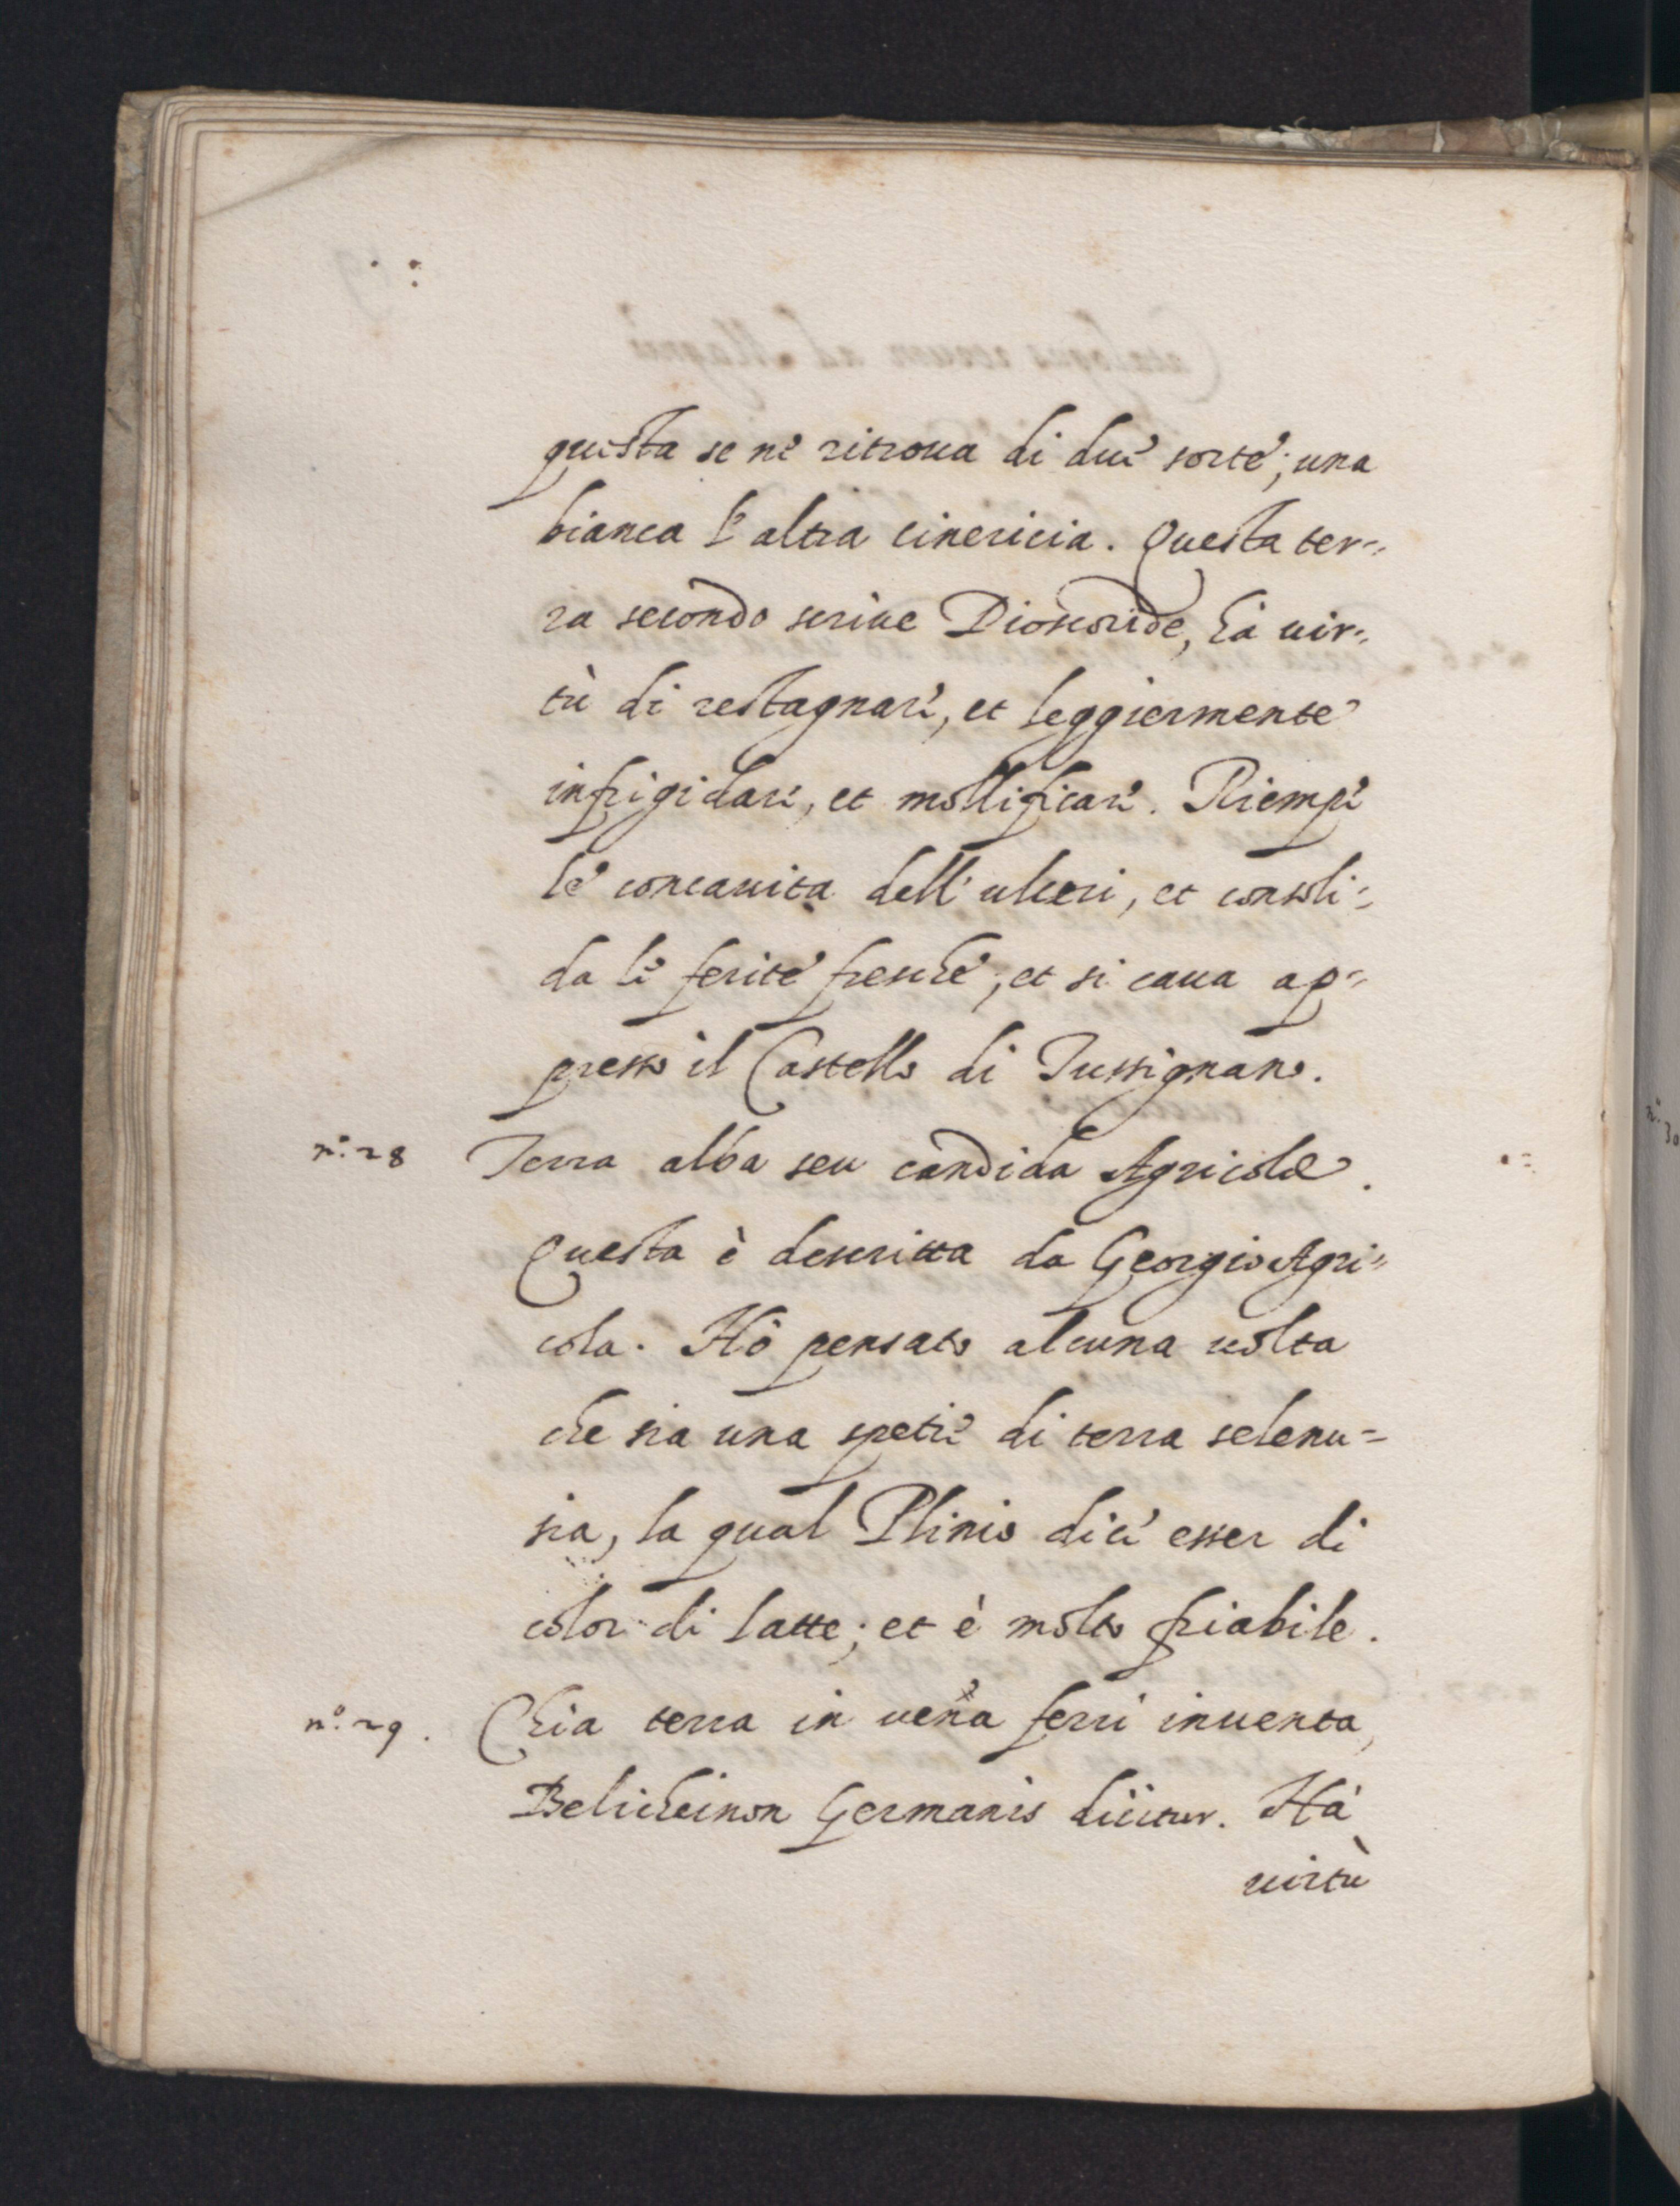 questa se ne ritroua di due sorte; una
bianca l'altra cinericia. Questa ter=
ra secondo scriue Dioscoride, hà uir=
tù di restagnare, et leggiermente
infrigidare, et mollificare. Riempe
le concauita dell'ulceri, et consoli=
da le ferite fresche; et si caua ap=
presso il Castello di Tussignano.
nº. 28 Terra alba seu candida Agricolæ.
Questa è descritta da Georgio Agri=
cola. Hò pensato alcuna uolta
che sia una spetie di terra selenu=
sia, la qual Plinio dice esser di
color di latte; et è molto friabile.
nº. 29. Chia terra in uena ferri inuenta,
Belicheinon Germanis dicitur. Hà
uirtù